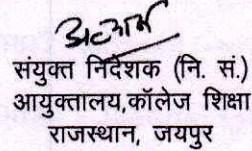 संयुक्त निदेशक (नि. सं.)
आयुक्तालय,कॉलेज शिक्षा
राजस्थान, जयपुर